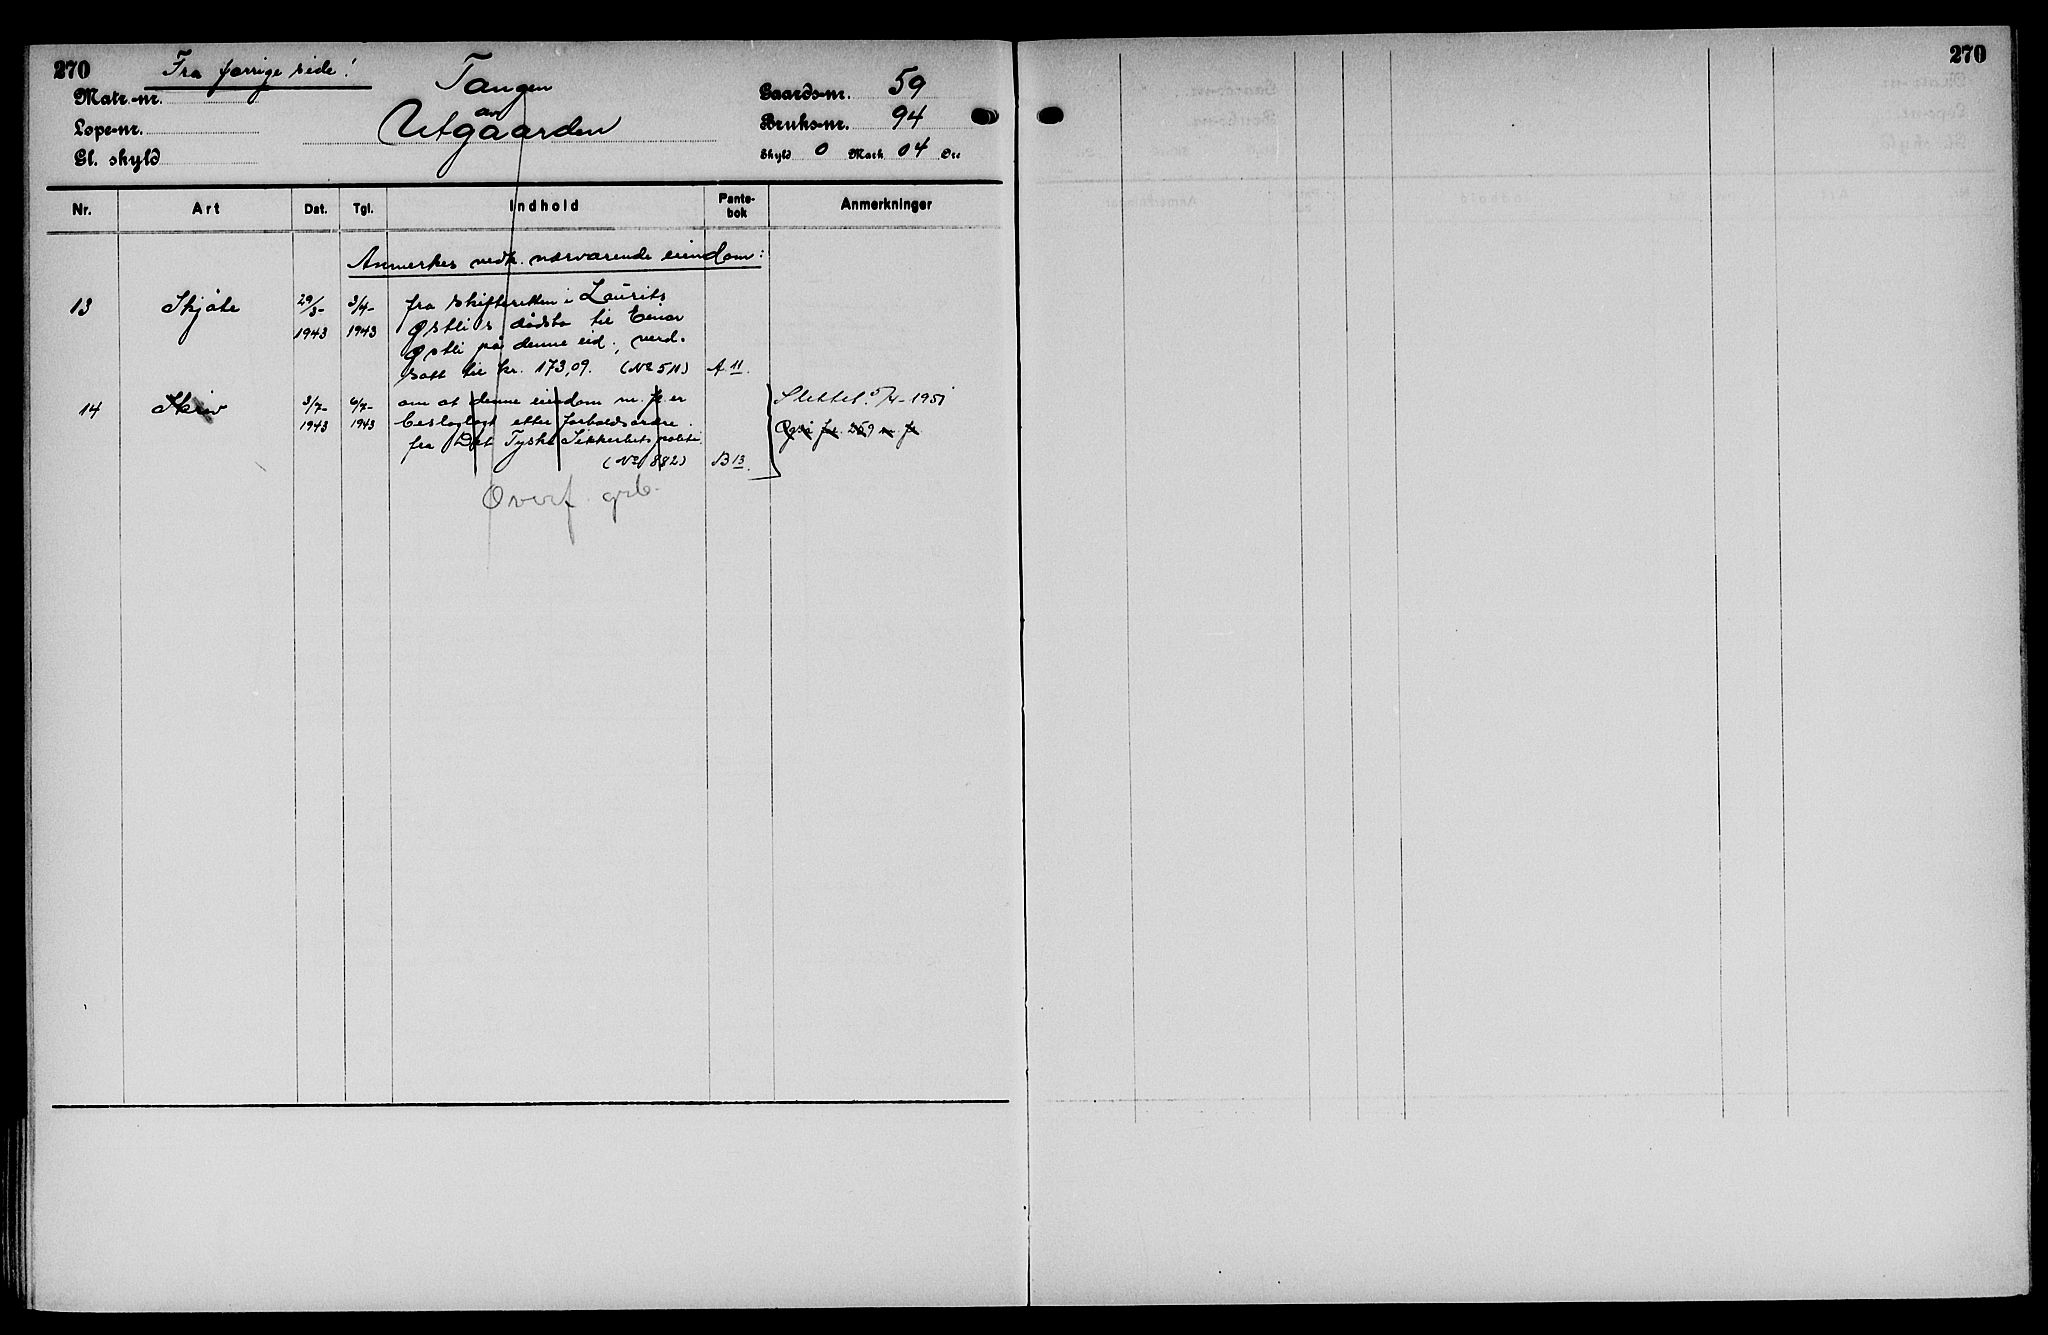 270
Fra forrige side!
Tangen
av
Utgaarden
Matr.-nr.
Løpe-nr.
Gl. skyld
Gaards-nr. 59
Bruks-nr. 94
Skyld 0 Mark 04 Øre
Nr. Art Dat. Tgl. Indhold Pante-bok Anmerkninger
Anmerkes vedk. nærværende eiendom:
13 Skjøte 29/3- 1943 3/4- 1943 fra skifteretten i Laurits
Østli's dødsbo til Einar
Østli på denne eid., verd-
satt til kr. 173,09. (No 511) A 11.
14 Skriv 3/7- 1943 6/7- 1943 om at denne eiendom m. fl. er
beslaglagt etter forbolds ordre
fra Det Tyske Sikkerhetspoliti
(No 882) B 13.
Slettet 5/4-1951
Også for 259 m. fl.
Overf. grb.
270